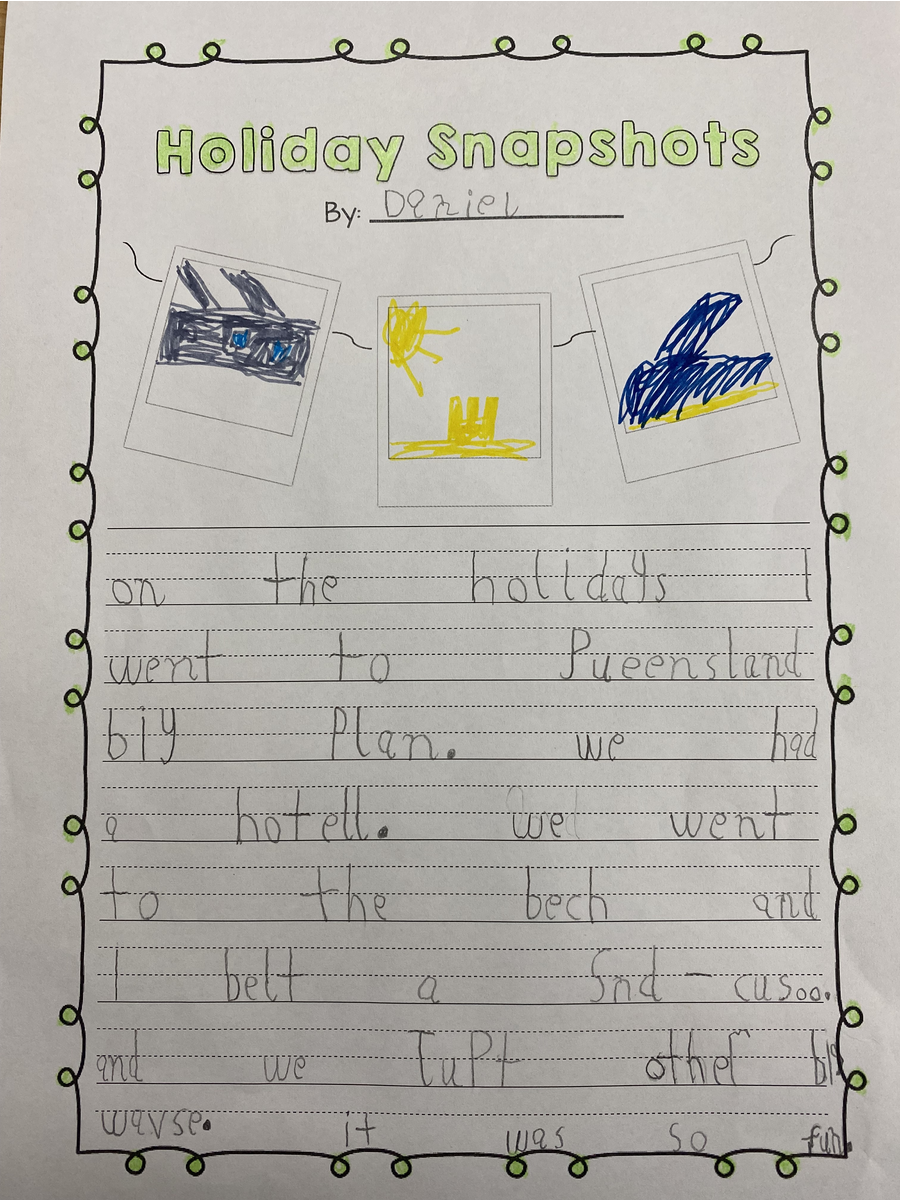 Holiday Snapshots
By: Daniel
on the holidays I
went to Pueensland
biy Plan. we had
a hotell. we went
to the bech and
I belt a Snd - cusoo.
and we Tupt other big
wavse. it was so fun.